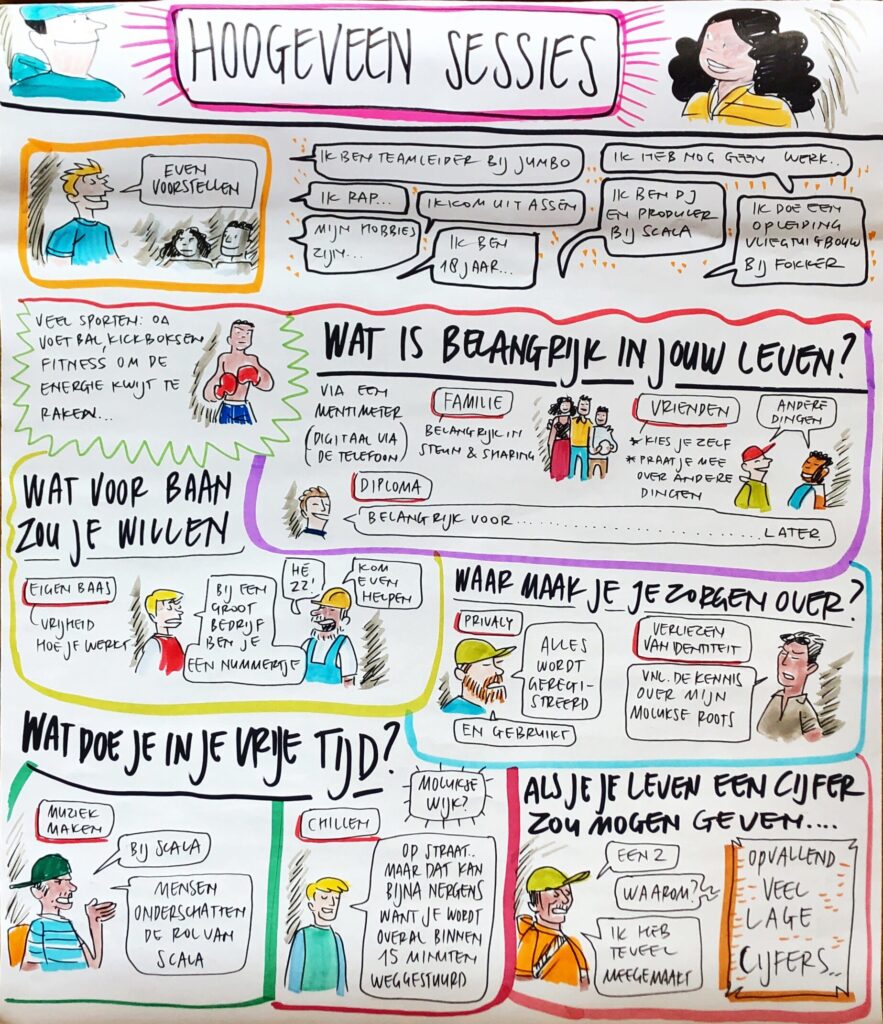 HOOGEVEEN SESSIES
EVEN
VOORSTELLEN
IK BEN TEAMLEIDER BIJ JUMBO
IK RAP...
IK KOM UIT ASSEN
MIJN HOBBIES
ZIJN...
IK BEN
18 JAAR...
IK HEB NOG GEEN WERK..
IK BEN DJ
EN PRODUCER
BIJ SCALA
IK DOE EEN
OPLEIDING
VLIEGTUIGBOUW
BIJ FOKKER
VEEL SPORTEN: OA
VOETBAL, KICKBOKSEN,
FITNESS OM DE
ENERGIE KWIJT TE
RAKEN...
WAT IS BELANGRIJK IN JOUW LEVEN?
VIA EEN
MENTIMETER
(DIGITAAL VIA
DE TELEFOON)
FAMILIE
BELANGRIJK IN
STEUN & SHARING
VRIENDEN
* KIES JE ZELF
* PRAAT JE MEE
OVER ANDERE
DINGEN
ANDERE
DINGEN
DIPLOMA
BELANGRIJK VOOR.......................LATER
WAT VOOR BAAN
ZOU JE WILLEN
EIGEN BAAS
VRIJHEID
HOE JE WERKT
BIJ EEN
GROOT
BEDRIJF
BEN JE
EEN NUMMERTJE
HÉ
22!
KOM
EVEN
HELPEN
WAAR MAAK JE JE ZORGEN OVER?
PRIVACY
ALLES
WORDT
GEREGI-
STREERD
EN GEBRUIKT
VERLIEZEN
VAN IDENTITEIT
VNL. DE KENNIS
OVER MIJN
MOLUKSE ROOTS
WAT DOE JE IN JE VRIJE TIJD?
MUZIEK
MAKEN
BIJ SCALA
MENSEN
ONDERSCHATTEN
DE ROL VAN
SCALA
CHILLEN
MOLUKSE
WIJK?
OP STRAAT..
MAAR DAT KAN
BIJNA NERGENS
WANT JE WORDT
OVERAL BINNEN
15 MINUTEN
WEGGESTUURD
ALS JE JE LEVEN EEN CIJFER
ZOU MOGEN GEVEN....
EEN 2
WAAROM?
IK HEB
TEVEEL
MEEGEMAAKT
OPVALLEND
VEEL
LAGE
CIJFERS..